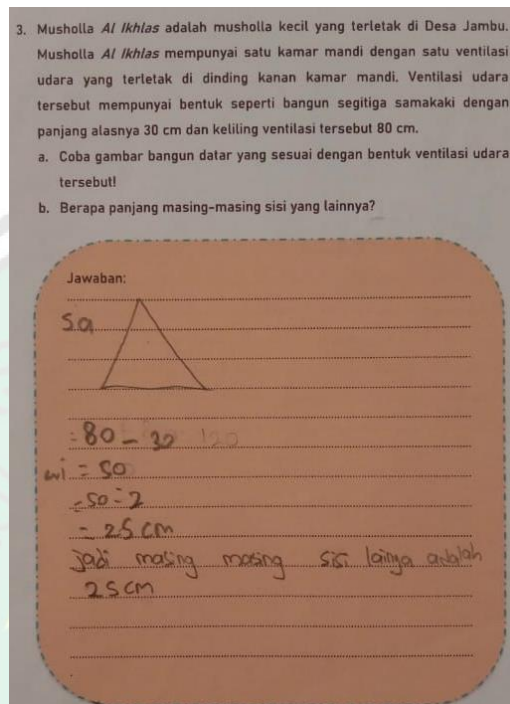 3. Musholla Al Ikhlas adalah musholla kecil yang terletak di Desa Jambu.
Musholla Al Ikhlas mempunyai satu kamar mandi dengan satu ventilasi
udara yang terletak di dinding kanan kamar mandi. Ventilasi udara
tersebut mempunyai bentuk seperti bangun segitiga samakaki dengan
panjang alasnya 30 cm dan keliling ventilasi tersebut 80 cm.
a. Coba gambar bangun datar yang sesuai dengan bentuk ventilasi udara
tersebut!
b. Berapa panjang masing-masing sisi yang lainnya?
Jawaban:
= 80 - 30
= 50
= 50 : 2
= 25 cm
jadi masing masing sisi lainya adalah
25 cm